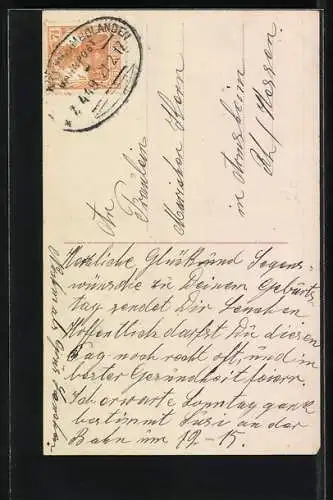 7½
An
Fräulein
Mariechen Horn
in Armsheim
Rh/Hessen.
Herzliche Glück und Segens-
wünsche zu Deinem Geburts
tag sendet Dir Lenchen
Hoffentlich darfst Du diesen
Tag noch recht oft und im
bester Gesundheit feiern.
Ich erwarte Sonntag ganz
bestimmt Susi an der
Bahn um 12-15.